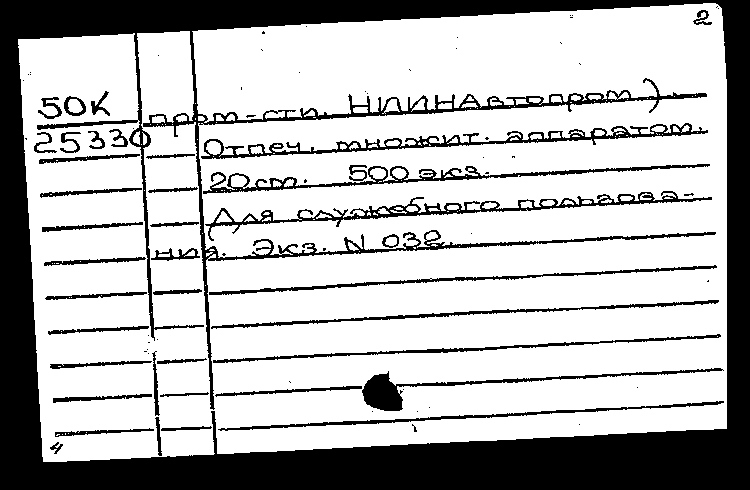 2
50К
25330
пром-сти. НИИНАвтопром).
Отпеч. множит. аппаратом.
20 ст. 500 экз.
Для служебного пользова-
ния. Экз. N 032.
4